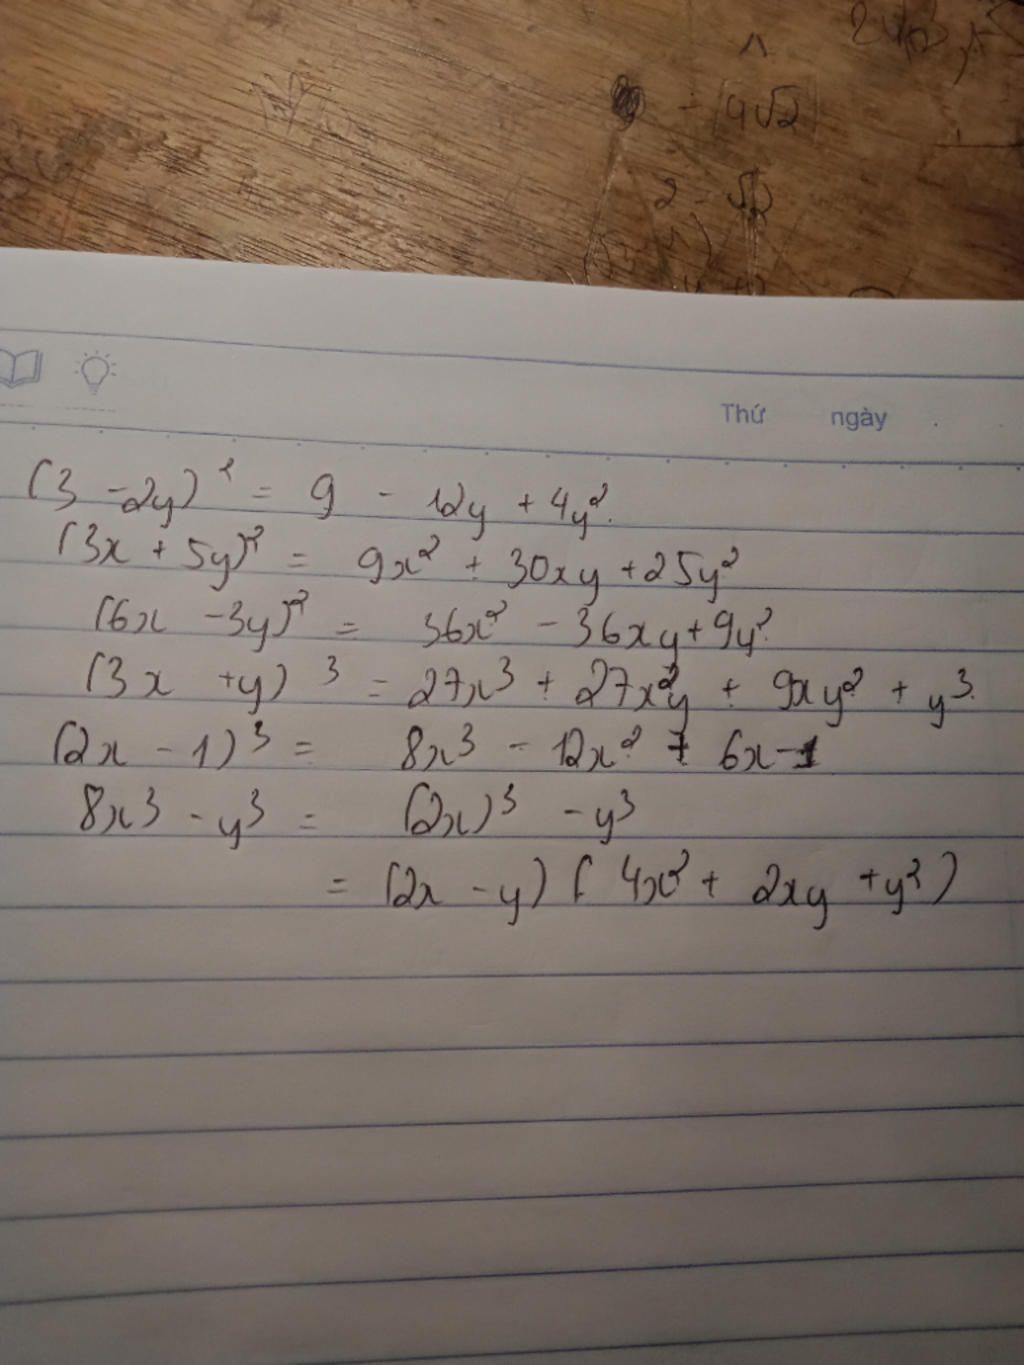 4√2
2 - √2
Thứ ngày
(3 - 2y)² = 9 - 12y + 4y².
(3x + 5y)² = 9x² + 30xy + 25y²
(6x - 3y)² = 36x² - 36xy + 9y²
(3x + y)³ = 27x³ + 27x²y + 9xy² + y³.
(2x - 1)³ = 8x³ - 12x² + 6x - 1
8x³ - y³ = (2x)³ - y³
= (2x - y) ( 4x² + 2xy + y²)